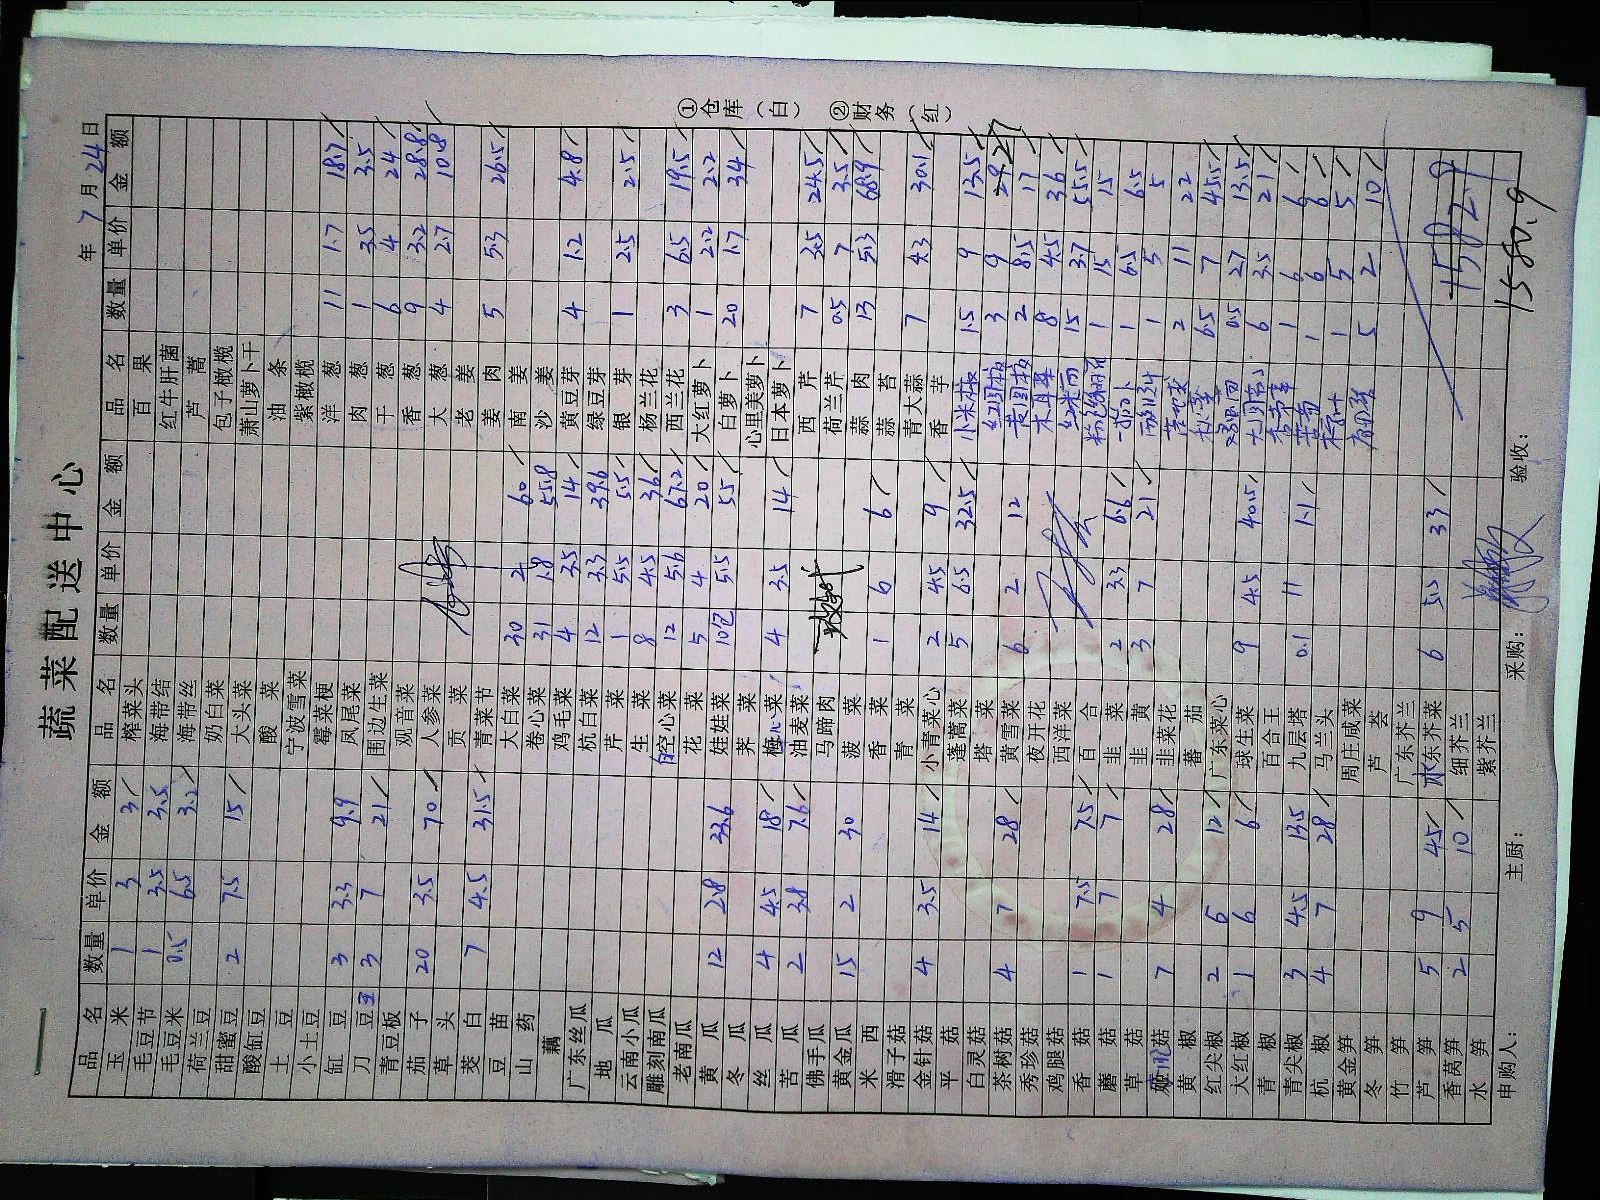 蔬菜配送中心
年 7 月 24 日
品名 数量 单价 金额 品名 数量 单价 金额 品名 数量 单价 金额
玉米 1 3 3 榨菜头 百果
毛豆节 1 3.5 3.5 海带结 红牛肝菌
毛豆米 0.5 6.5 3.2 海带丝 芦蒿
荷兰豆 奶白菜 包子橄榄
甜蜜豆 2 7.5 15 大头菜 萧山萝卜干
酸缸豆 酸菜 油条
土豆 宁波雪菜 紫橄榄
小土豆 霉菜梗 洋葱 11 1.7 18.7
缸豆 3 3.3 9.9 凤尾菜 肉葱 1 3.5 3.5
刀豆 3 7 21 围边生菜 干葱 6 4 24
青豆板 观音菜 香葱 9 3.2 28.8
茄子 20 3.5 70 人参菜 大葱 4 2.7 10.8
草头 贡菜 老姜
茭白 7 4.5 31.5 青菜节 姜肉 5 5.3 26.5
豆苗 大白菜 30 2 60 南姜
山药 卷心菜 31 1.8 55.8 沙姜
藕 鸡毛菜 4 3.5 14 黄豆芽 4 1.2 4.8
广东丝瓜 杭白菜 12 3.3 39.6 绿豆芽
地瓜 芹菜 1 5.5 5.5 银芽 1 2.5 2.5
云南小瓜 生菜 8 4.5 36 杨兰花
雕刻南瓜 白空心菜 12 5.6 67.2 西兰花 3 6.5 19.5
老南瓜 花菜 5 4 20 大红萝卜 1 2.2 2.2
黄瓜 12 2.8 33.6 娃娃菜 10包 5.5 55 白萝卜 20 1.7 34
冬瓜 荠菜 心里美萝卜
丝瓜 4 4.5 18 梅心菜 4 3.5 14 日本萝卜
苦瓜 2 3.8 7.6 油麦菜 西芹 7 3.5 24.5
佛手瓜 马蹄肉 荷兰芹 0.5 7 3.5
黄金瓜 15 2 30 菠菜 蒜肉 13 5.3 68.9
米西 香菜 1 6 6 蒜苔
滑子菇 青菜 青大蒜 7 4.3 30.1
金针菇 4 3.5 14 小青菜心 2 4.5 9 香芋
平菇 蓬蒿菜 5 6.5 32.5 小米椒 1.5 9 13.5
白灵菇 塔菜 红圆椒 3 9 27
茶树菇 4 7 28 黄雪菜 6 2 12 黄圆椒 2 8.5 17
秀珍菇 夜开花 木耳菜 8 4.5 36
鸡腿菇 西洋菜 红米苋 15 3.7 55.5
香菇 1 7.5 7.5 百合 1 15 15
蘑菇 1 7 7 韭菜 2 3.3 6.6 1 6.5 6.5
草菇 韭黄 3 7 21 1 5 5
菇 7 4 28 韭菜花 2 11 22
黄椒 蕃茄 秋葵 6.5 7 45.5
红尖椒 2 6 12 广东菜心 0.5 27 13.5
大红椒 1 6 6 球生菜 9 4.5 40.5 6 3.5 21
青椒 百合王 1 6 6
青尖椒 3 4.5 13.5 九层塔 0.1 11 1.1 1 6 6
杭椒 4 7 28 马兰头 1 5 5
黄金笋 周庄咸菜 5 2 10
冬笋 芦荟
竹笋 广东芥兰
芦笋 5 9 45 水东芥菜 6 5.5 33 1582.9
香莴笋 2 5 10 细芥兰
水笋 紫芥兰 1580.9
申购人: 主厨: 采购: 验收:
①仓库(白) ②财务(红)